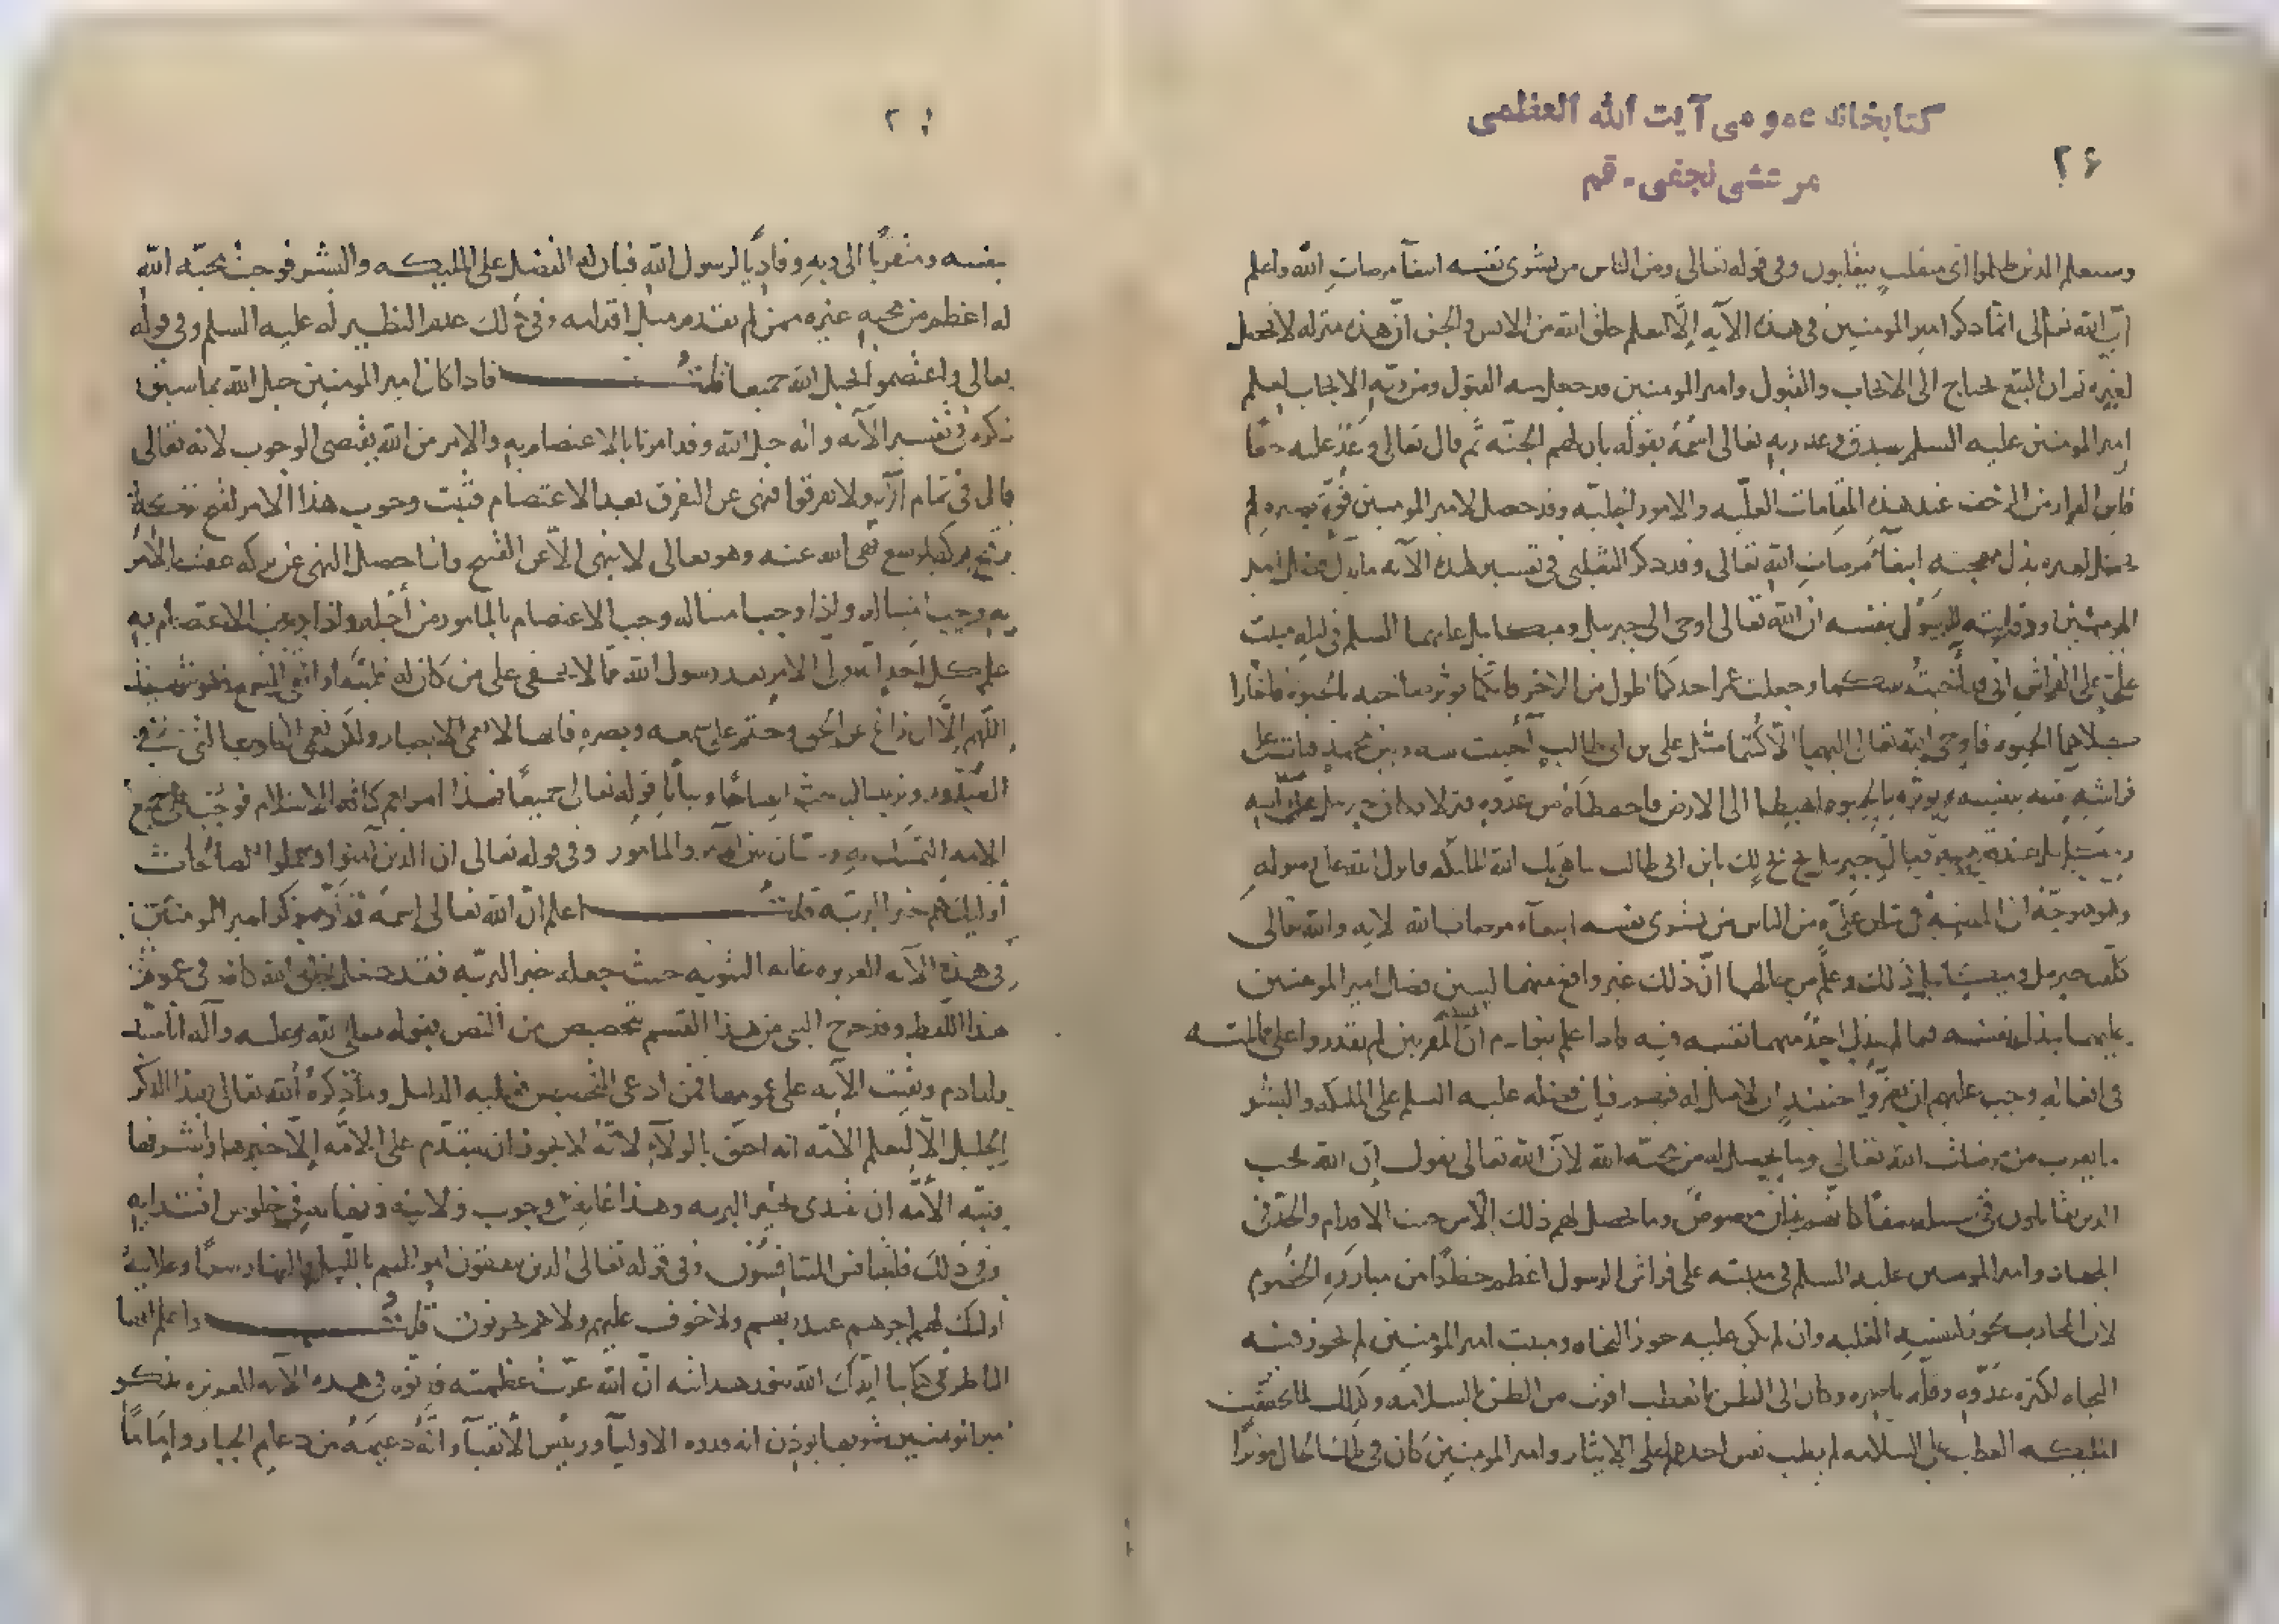 كتابخانه عمومی آیت الله العظمی
مرعشی نجفی - قم
۲۶
وسيعلم الذين ظلموا اى منقلب ينقلبون وفى قوله تعالى ومن الناس من يشرى نفسه ابتغآ مرضات الله واعلم
انّ الله تعالى انما ذكر امير المومنين فى هذه الآيه إلّا ليعلم خلق الله من الانس والجن انّ هذه منزله لا تحصل
لغيره ثم ان البيع يحتاج الى الايجاب والقبول وامير المومنين قد حصل منه القبول ومن ربّه الايجاب ليعلم
امير المومنين عليه السلم بصدق وعد ربه تعالى اسمُهُ بقوله بان لهم الجنّه ثم قال تعالى وَعْدًا عليه حقًا
فاين الفرار من الزحف عند هذه المقامات العليّه والامور الجليّه وقد حصل لامير المومنين قوّة بصيره لم
تحصل لغيره بذل مهجته ابتغآء مرضات الله تعالى وقد ذكر الثعلبى فى تفسير هذه الآيه ما يدل على فضل امير
المومنين ووقايته للرسول بنفسه ان الله تعالى اوحى الى جبريل وميكايل عليهما السلم فى ليله مبيت
علىّ على الفراش انى قد آخيت بينكما وجعلت عمر احدكما اطول من الاخر فايّكما يوثر صاحبه بالحيوه فاختارا
كلاهما الحيوه فاوحى الله تعالى اليهما ألا كنتما مثل على بن ابى طالب آخيت بينه وبين محمد فبات على
فراشه يقيه بنفسه ويوثره بالحيوه اهبطا الى الارض فاحفظاه من عدوه فنزلا وكان جبريل عند راسه
وميكايل عند رجليه فقال جبريل بخ بخ لك يابن ابى طالب يباهى بك الله الملئكه فانزل الله على رسوله
وهو متوجّه الى المدينة فى شان علىّ ومن الناس من يشرى نفسه ابتغآء مرضات الله الايه والله تعالى
كلّف جبريل وميكايل ذلك وعلم من حالهما انّ ذلك غير واقع منهما ليبين فضل امير المومنين
عليهما ببذل نفسه فيما لم يبذل احدٌ منهما نفسه فيه فاذا علم ان المقربين لم يقدروا على مماثلته
فى افعاله وجب عليهم ان يقرّوا حينئذٍ ان لا مثل له فبان فضله عليه السلم على الملئكه والبشر
ما يقرب من مرضات الله تعالى وما يحصل له من محبّه الله لانّ الله تعالى يقول ان الله يحب
الذين يقاتلون فى سبيله صفًّا كانهم بنيان مرصوص وما حصل لهم ذلك إلّا من حيث الاقدام والجدّ فى
الجهاد وامير المومنين عليه السلم فى مبيته على فراش الرسول اعظم خطرًا من مبارزه الخصوم
لان المحارب يجوز لنفسه الغلبه وان لم يكن عليه جوز النجاه ومبيت امير المومنين لم يجوز فيه
النجاه لكثره عدوّه وقلّه ناصره وكان الى الظن بالعطب اقرب من الظن بالسلامه وكذلك لما تحققت
الملئكه العطب على السلامه لم يطب نفس احدهما على الايثار وامير المومنين كان فى تلك الحال موثرًا
بنفسه ومتقربًا الى ربه وفاديًا لرسول الله فبان له الفضل على الملئكه والبشر فوجبت محبّه الله
له اعظم من محبه غيره ممن لم يقدم مثل اقدامه وفى ذلك عدم النظير له عليه السلم وفى قوله
تعالى واعتصموا بحبل الله جميعا قلت فاذا كان امير المومنين حبل الله بما سبق
ذكره فى تفسير الآيه وانه حبل الله وقد امرنا بالاعتصام به والامر من الله يقتضى الوجوب لانه تعالى
قال فى تمام الآيه ولا تفرقوا فنهى عن التفرق بعد الاعتصام فثبت وجوب هذا الامر
نهى الله عنه وهو تعالى لا ينهى الّا عن القبيح واذا حصل النهى عن تركه
به وجب امتثاله واذا وجب امتثاله وجب الاعتصام بالمامور من أجله واذا وجب الاعتصام به
علم كل احد انه ولى الامر بعد رسول الله ممّا لا يخفى على من كان له قلب او القى السمع وهو شهيد
اللّهم إلّا ان زاغ عن الحق وختم على سمعه وبصره فانها لا تعمى الابصار ولكن تعمى القلوب التى فى
الصدور ونزيد البحث ايضاحًا وبيانًا قوله تعالى جميعًا فهذا امر يعم كافه الاسلام فوجب على جميع
الامه التمسّك به وشتان بين الآمر والمامور وفى قوله تعالى ان الذين آمنوا وعملوا الصالحات
أوليك هم خير البريّه قلت اعلم انّ الله تعالى إسمه قد ذكر امير المومنين
فى هذه الآيه العزيزه غايه التنويه حيث جعله خير البريّه فقد دخل خلق الله كافه فى عموم
هذا اللفظ وقد خرج النبى من هذا القسم بتخصيص من النص بقوله صلى الله عليه وآله انا سيّد
ولد آدم وبقيت الآيه على عمومها فمن ادعى التخصيص فعليه الدليل وما ذكره الله تعالى بهذا الذكر
الجليل الّا ليعلم الامّه انه احق بالولآء لانّه لا يجوز ان يتقدّم على الامّه إلّا خيرها واشرفها
ونبّه الأمّه ان تقتدى بخير البريه وهذا غايه فى وجوب ولايته
وفى ذلك فليتنافس المتنافسون وفى قوله تعالى الذين ينفقون اموالهم بالليل والنهار سرًّا وعلانيةً
اوليك لهم اجرهم عند ربهم ولا خوف عليهم ولا هم يحزنون قلت واعلم ايها
الناظر فى كتابنا ايّدك الله بنور هدايته انّ الله عزّت عظمته قد نوّه فى هذه الآيه العزيزه بذكر
امير المومنين تنويها يوذن انه قدوه الاوليآء ورييس الأتقيآء وانّهُ دعيمَهُ من دعايم الجبار وإمَامًا